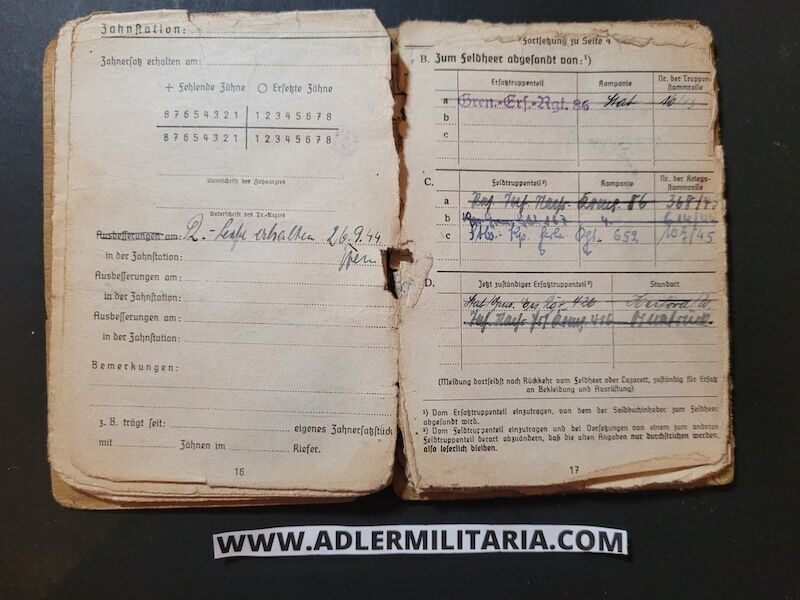 Zahnstation:
Zahnersatz erhalten am:
+ Fehlende Zähne ○ Ersetzte Zähne
8 7 6 5 4 3 2 1 | 1 2 3 4 5 6 7 8
8 7 6 5 4 3 2 1 | 1 2 3 4 5 6 7 8
Unterschrift des Zahnarztes
Unterschrift des Tr.-Arztes
Ausbesserungen am: erhalten 26.9.44
in der Zahnstation:
Ausbesserungen am:
in der Zahnstation:
Ausbesserungen am:
in der Zahnstation:
Bemerkungen:
z. B. trägt seit: eigenes Zahnersatzstück
mit Zähnen im Kiefer.
16
Fortsetzung zu Seite 4
B. Zum Feldheer abgesandt von:¹)
Ersatztruppenteil Kompanie Nr. der Truppen-
stammrolle
a Gren.-Ers.-Rgt. 86 Stab
b
c
C. Feldtruppenteil²) Kompanie Nr. der Kriegs-
stammrolle
a 86 368/43
b
c 652
D. Jetzt zuständiger Ersatztruppenteil²) Standort
(Meldung dortselbst nach Rückkehr vom Feldheer oder Lazarett, zuständig für Ersatz
an Bekleidung und Ausrüstung)
¹) Vom Ersatztruppenteil einzutragen, von dem der Soldbuchinhaber zum Feldheer
abgesandt wird.
²) Vom Feldtruppenteil einzutragen und bei Versetzungen von einem zum anderen
Feldtruppenteil derart abzuändern, daß die alten Angaben nur durchstrichen werden,
also leserlich bleiben.
17
WWW.ADLERMILITARIA.COM